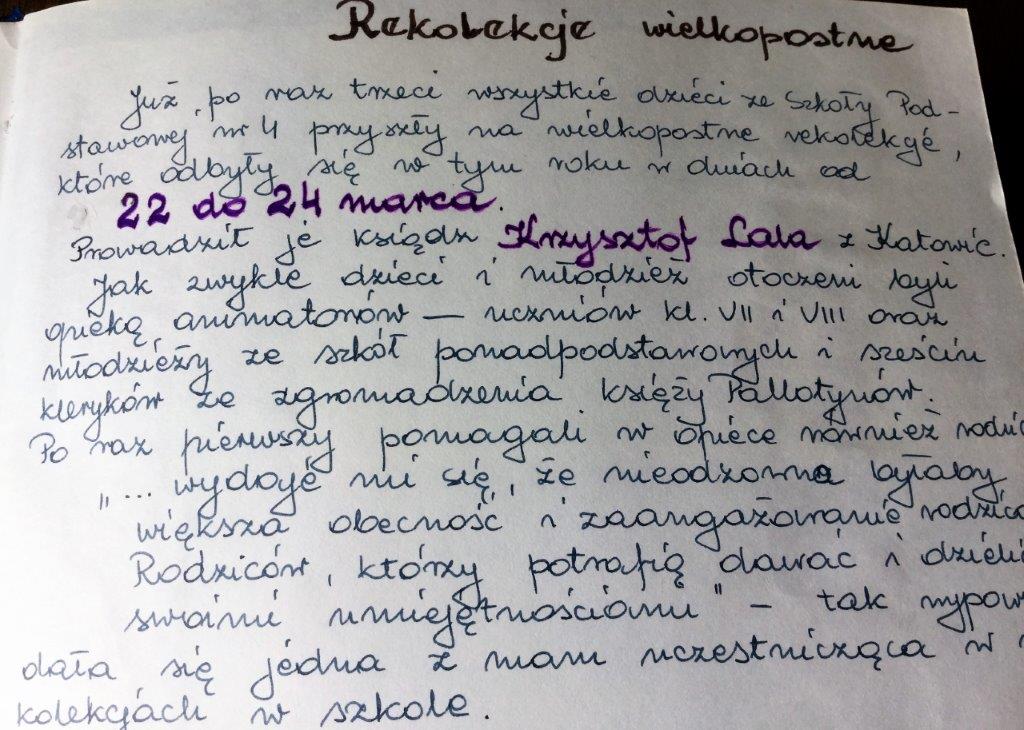 Rekolekcje wielkopostne
Już po raz trzeci wszystkie dzieci ze Szkoły Pod-
stawowej nr 4 przyszły na wielkopostne rekolekcje,
które odbyły się w tym roku w dniach od
22 do 24 marca.
Prowadził je ksiądz Krzysztof Lala z Katowic.
Jak zwykle dzieci i młodzież otoczeni byli
opieką animatorów — uczniów kl. VII i VIII oraz
młodzieży ze szkół ponadpodstawowych i sześciu
kleryków ze zgromadzenia księży Pallotynów.
Po raz pierwszy pomagali w opiece również rodzic
„... wydaje mi się, że nieodzowna byłaby
większa obecność i zaangażowanie rodzicó
Rodziców, którzy potrafią dawać i dzieli
swoimi umiejętnościami" - tak wypow
dała się jedna z mam uczestnicząca w
kolekcjach w szkole.